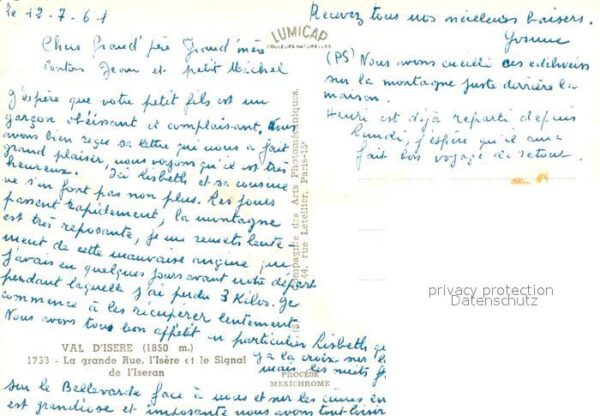 le 12-7-61
Chers Grand' père Grand' mère
tonton Jean et petit Michel
J'espère que votre petit fils est un
garçon obéissant et complaisant. Nous
avons bien reçu sa lettre qui nous a fait
grand plaisir, nous voyons qu'il est très
heureux. Ici Lisbeth et sa cousine
ne s'en font pas non plus. Les jours
passent rapidement, la montagne
est très reposante, je me remets lente-
ment de cette mauvaise angine que
j'avais eu quelques jours avant notre départ
pendant laquelle j'ai perdu 3 Kilos. Je
commence à les récupérer lentement.
Nous avons tous bon appétit en particulier Lisbeth
VAL D'ISERE (1850 m.)
1733 - La grande Rue, l'Isère et le Signal
de l'Iseran
y a la croix sur
mais les nuits
sur le Bellevarde face à nous et sur les cimes en
est grandiose et imposante nous avons tout loisir
LUMICAP
COULEURS NATURELLES
Compagnie des Arts Photomécaniques,
44, rue Letellier, Paris-15
PROCÉDÉ
MEXICHROME
Recevez tous nos meilleurs baisers.
Yvonne
(PS) Nous avons cueilli des edelweiss
sur la montagne juste derrière la
maison.
Henri est déjà reparti depuis
Lundi, j'espère qu'il aura
fait bon voyage de retour.
privacy protection
Datenschutz